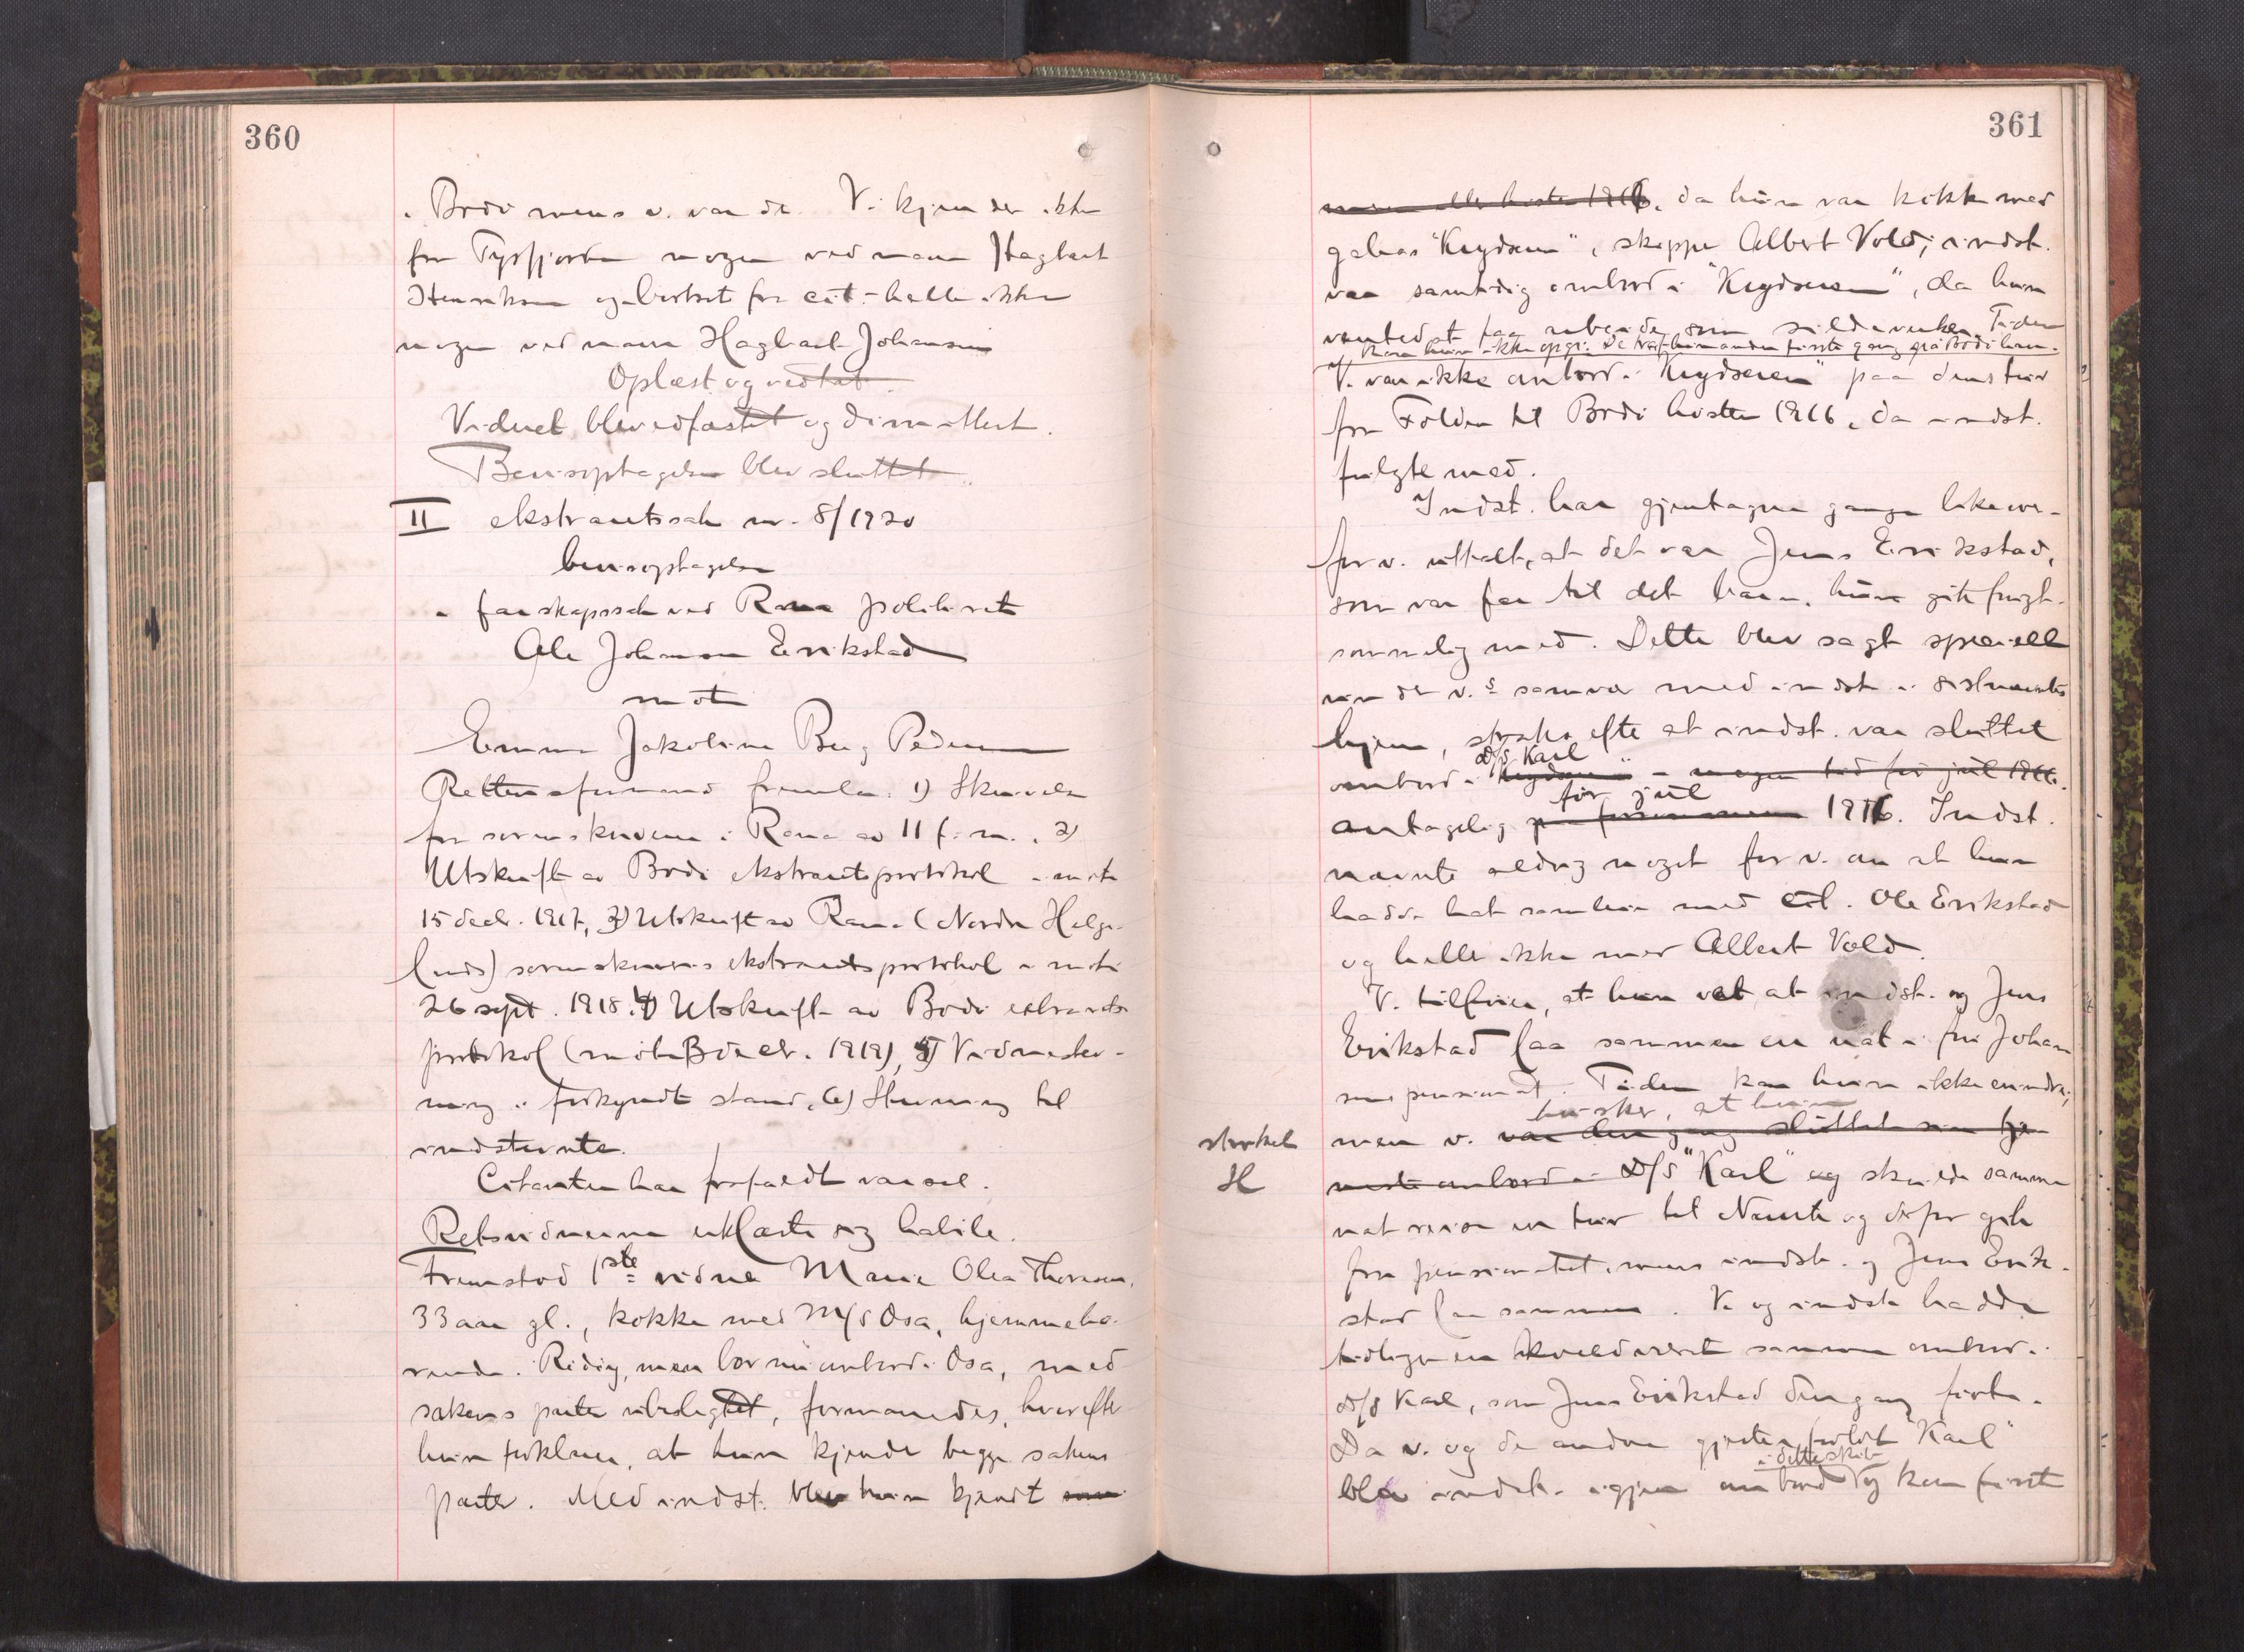 360
i Bodø mens v. var der. V. kjender ikke
fra Tysfjorden nogen ved navn Hagbart
Henriksen og bortset fra cit. heller ikke
nogen ved navn Hagbart Johansen
Oplæst og vedtat.
Vidnet blev edfæstet og dimittert.
Bevisoptagelsen blev sluttet.
II ekstraretssak nr. 8/1920
bevisoptagelse
i farskapssak ved Rana politiret
Ole Johansen Erikstad
mot
Emma Jakobine Berg Pedersen
Rettens formand fremla: 1) Skrivelse
fra sorenskriveren i Rana av 11 f.m., 2)
Utskrift av Bodø ekstraretsprotokol i møte
15 decbr. 1917, 3) Utskrift av Rana (Nordre Helge-
lands) sorenskriveris ekstraretsprotokol i møte
26 sept. 1918. 4) Utskrift av Bodø extrarets
protokol (møte 3 decbr. 1919), 5) Vidnestev-
ning i forkyndt stand, 6) Stevning til
indstevnte.
Citanten har frafaldt varsel.
Retsvidnerne erklærte sig habile.
Fremstod 1ste vidne Marie Olea Thoresen,
33 aar gl., kokke med M/S Osa, hjemmehø-
rende Rødøy, men bor nu ombord i Osa, med
sakens parter ubeslegtet, formanedes, hvorefter
hun forklarer, at hun kjender begge sakens
parter. Med indst. blev hun kjendt som
361
høsten 1916, da hun var kokke med
galeas "Krydseren", skipper Albert Vold; indst.
var samtidig ombord i "Krydseren", da hun
ventedet faa arbeide som sildevirker. Tiden
kan hun ikke opgi. De traf hinanden første gang paa Bodø havn.
V. var ikke ombord i "Krydseren" paa dens tur
fra Folden til Bodø høsten 1916, da indst.
fulgte med.
Indst. har gjentagne ganger likeover-
for v. uttalt, at det var Jens Erikstad,
som var far til det barn, hun gik frugt-
sommelig med. Dette blev sagt specielt
under v.s samvær med indst. i sidstnævntes
hjem, straks efter at indst. var sluttet
D/S Karl
ombord i "Krydseren" - nogen tid før jul 1916.
før jul
antagelig 1916. Indst.
nævnte aldrig noget for v. om at hun
hadde hat samleie med cit. Ole Erikstad
og heller ikke med Albert Vold.
V. tilføier, at hun vet, at indst. og Jens
Erikstad laa sammen en nat i fru Johan
sens pensionat. Tiden kan hun ikke erindre,
husker, at hun
strøket
H
men v. var den gang sluttet som tje-
neste ombord i D/S "Karl" og skulde samme
nat reise en tur til Næsne og derfor gik
fra pensionatet, mens indst. og Jens Erik-
stad laa sammen. V. og indst. hadde
tidligere en kveld været sammen ombord i
D/S Karl, som Jens Erikstad dengang førte.
Da v. og de andre gjester forlot "Karl"
i dette skib
blev indst. igjen ombord og kom først